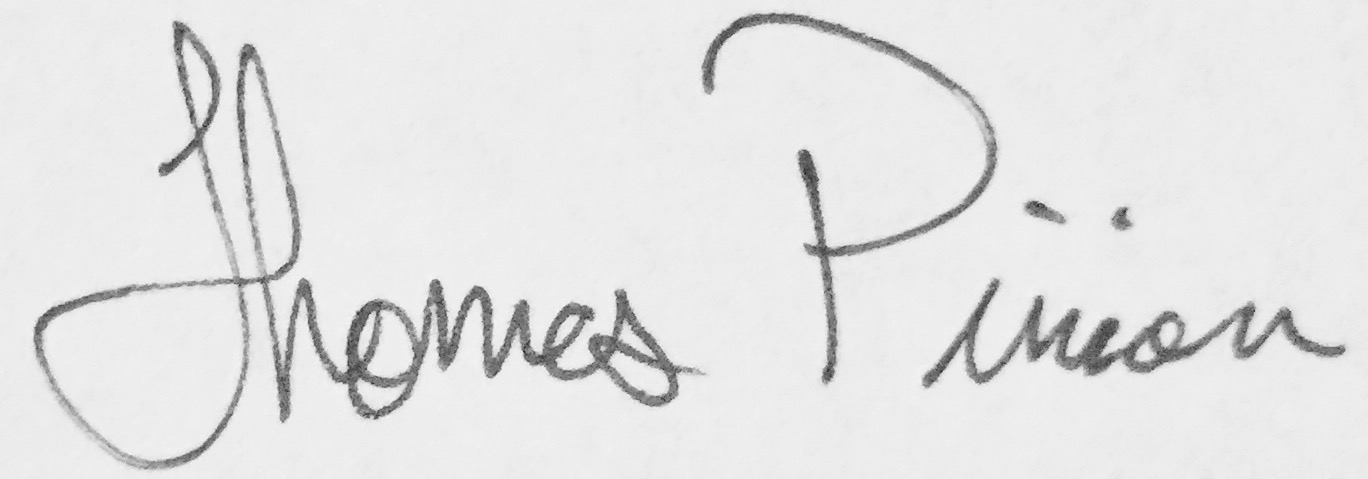 Thomas Pinion